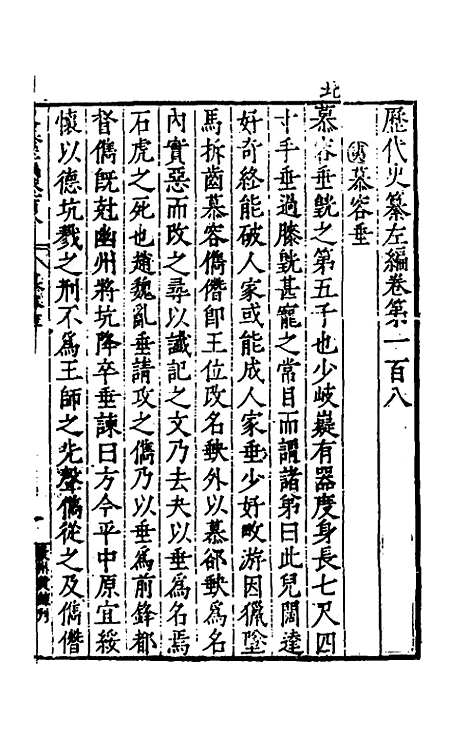 歷代史纂左編卷第一百八
慕容垂
北
慕容垂皝之第五子也少岐嶷有器度身長七尺四
寸手垂過膝皝甚寵之常目而謂諸弟曰此兒闊達
好奇終能破人家或能成人家垂少好畋游因獵墜
馬折齒慕容儁僭卽王位改名䡺外以慕郤䡺爲名
內實惡而改之尋以讖記之文乃去夬以垂爲名焉
石虎之死也趙魏亂垂請攻之儁乃以垂爲前鋒都
督儁旣尅幽州將坑降卒垂諫曰方今平中原宜綏
懷以德坑戮之刑不爲王師之先聲儁從之及儁僭